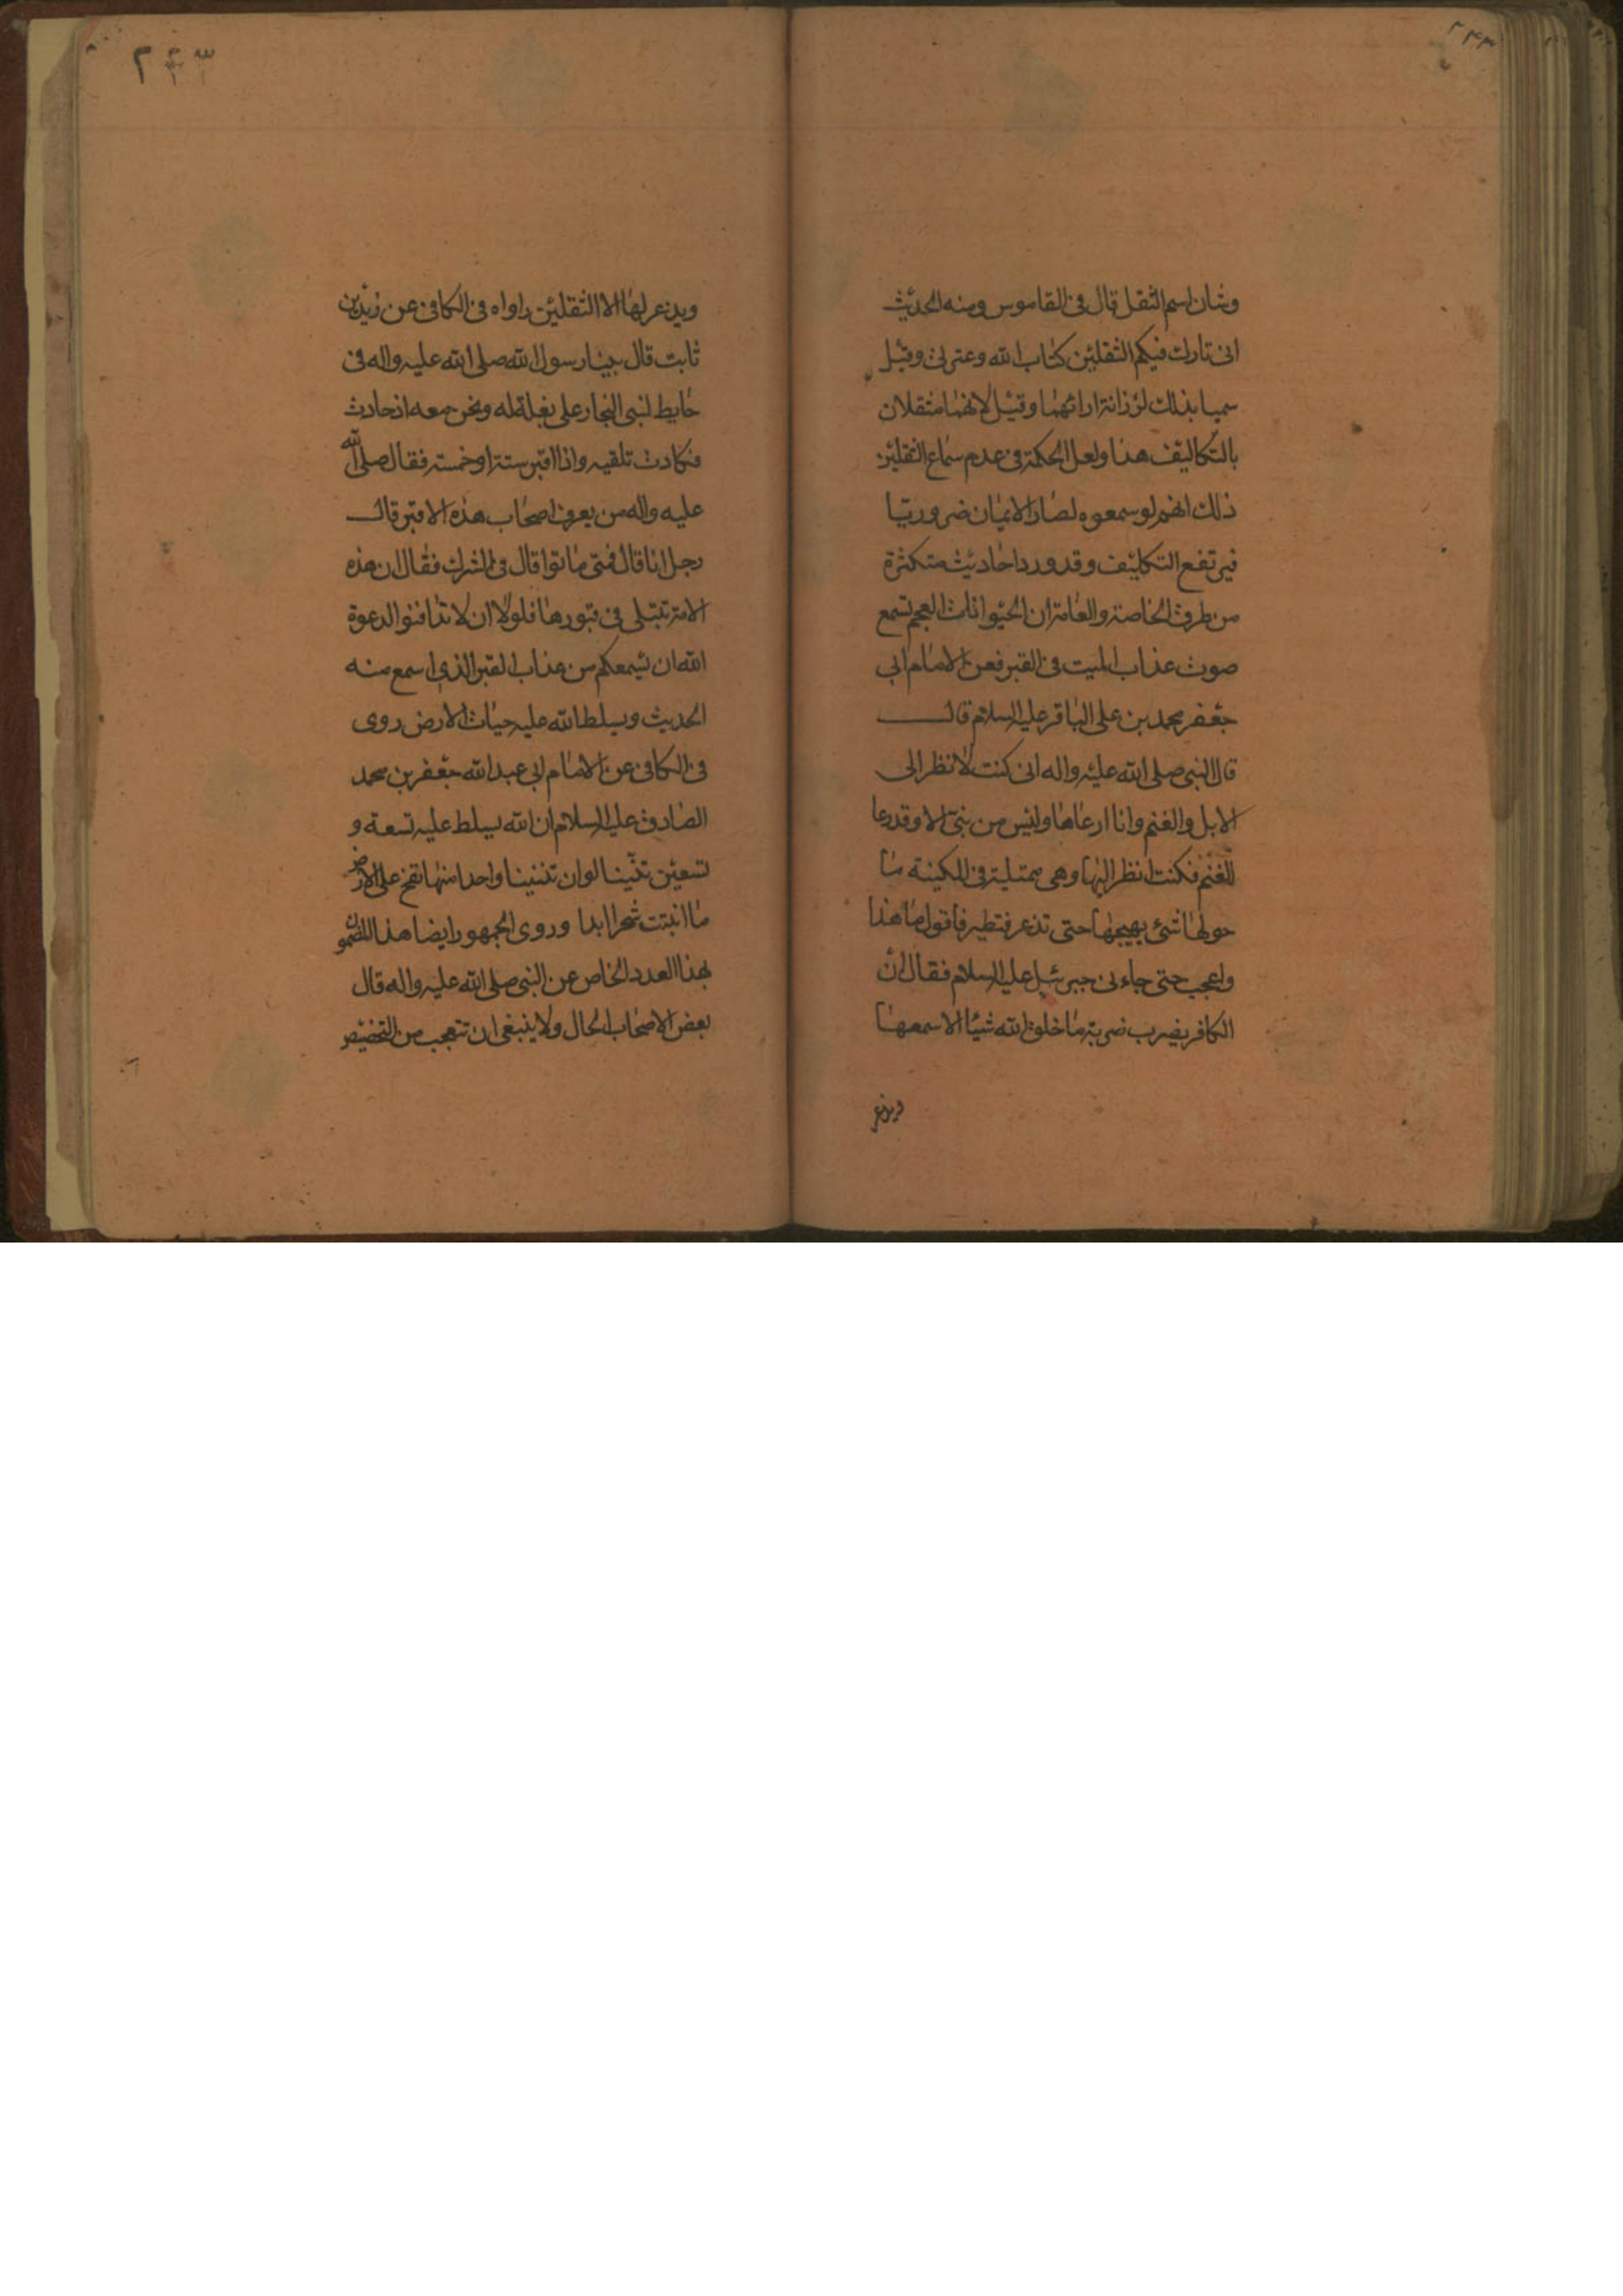 وشان اسم الثقل قال فى القاموس ومنه الحديث
انى تارك فيكم الثقلين كتاب الله وعترتى وقيل
سميا بذلك لرزانة ارائهما وقيل لانهما مثقلان
بالتكاليف هذا ولعل الحكمة فى عدم سماع الثقلين
ذلك انهم لو سمعوه لصار الايمان ضروريا
فيرتفع التكليف وقد ورد احاديث متكثرة
من طرق الخاصة والعامة ان الحيوانات العجم تسمع
صوت عذاب الميت فى القبر فعن الامام ابى
جعفر محمد بن على الباقر عليه السلام قال
قال النبى صلى الله عليه واله انى كنت لانظر الى
الابل والغنم وانا ارعاها وليس من نبى الا وقد رعا
الغنم فكنت انظر اليها وهى ممتلية فى المكينه ما
حولها شئ يهيجها حتى تذعر فتطير فاقول ما هذا
واعجب حتى جاءنى جبرئيل عليه السلام فقال ان
الكافر يضرب ضربة ما خلق الله شيئا الا سمعها
ويذعر
٢٣٣
ويذعر لها الا الثقلين راواه فى الكافى عن زيد بن
ثابت قال بينا رسول الله صلى الله عليه واله فى
حايط لنبى النجار على بغلة له ونحن معه اذ حادث
فكادت تلقيه واذا اقبر ستة او خمسة فقال صلى الله
عليه واله من يعرف اصحاب هذه الاقبر قال
رجل انا قال فمتى ماتوا قال فى الشرك فقال ان هذه
الامة تبتلى فى قبورها فلولا ان لا تدافنوا لدعوة
الله ان يسمعكم من عذاب القبر الذى اسمع منه
الحديث ويسلط الله عليه حيات الارض روى
فى الكافى عن الامام ابى عبد الله جعفر بن محمد
الصادق عليه السلام ان الله يسلط عليه تسعة و
تسعين تنينا لو ان تنينا واحدا منها نفخ على الارض
ما انبتت شجرا ابدا وروى الجمهور ايضا هذا المضمون
بهذا العدد الخاص عن النبى صلى الله عليه واله قال
بعض الاصحاب الحال ولا ينبغى ان تتعجب من التخصيص